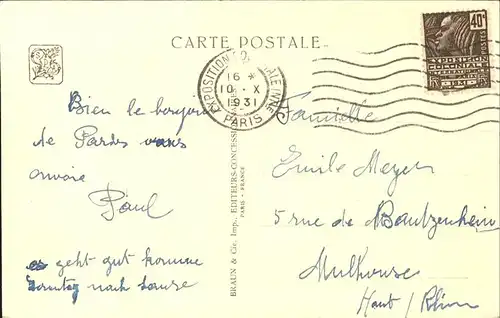 CARTE POSTALE
40c
EXPOSITION
COLONIALE
INTERNATIONALE
PARIS
EXPOSITION COLONIALE INTLE
16 *
10 - X
1931
PARIS
Bien le bonjour
de Paris vous
envoie
Paul
es geht gut komme
Sonntag nach Hause
BRAUN & Cie. Imp., EDITEURS-CONCESSIONNAIRES
PARIS - FRANCE
Famille
Emile Meyer
5 rue de Bantzenheim
Mulhouse
Haut / Rhin